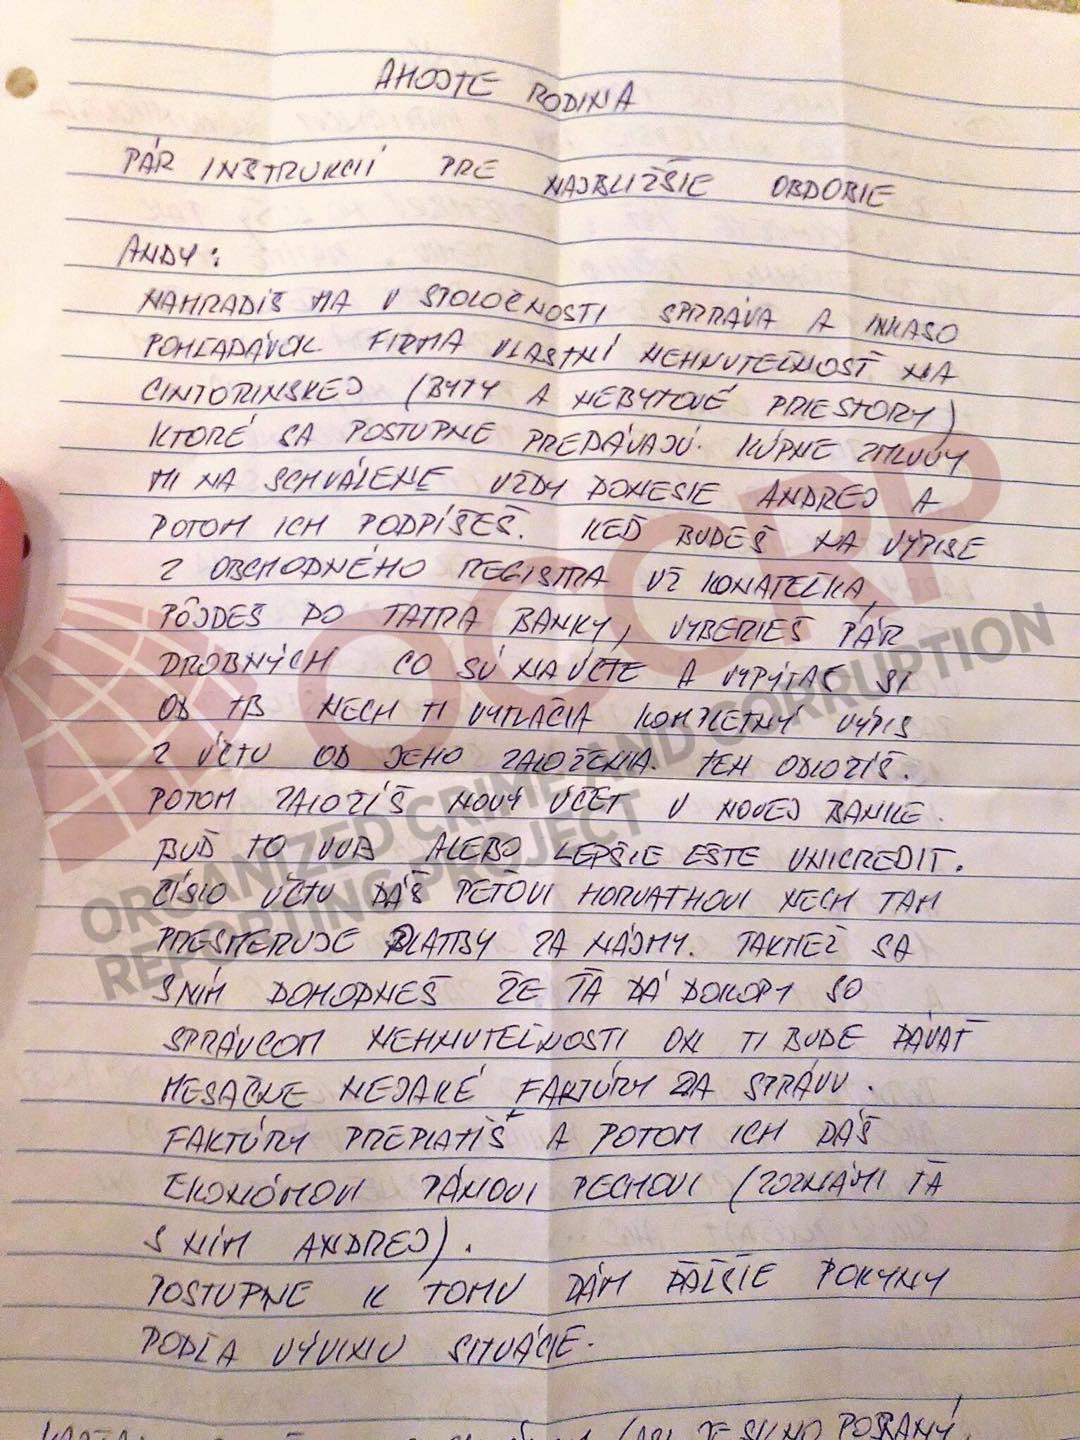 AHOJTE RODINA
PÁR INŠTRUKCIÍ PRE NAJBLIŽŠIE OBDOBIE
ANDY:
NAHRADÍŠ MA V SPOLOČNOSTI SPRRÁVA A INKASO
POHĽADÁVOK FIRMA VLASTNÍ NEHNUTEĽNOSŤ NA
CINTORINSKEJ (BYTY A NEBYTOVÉ PRIESTORY)
KTORÉ SA POSTUPNE PREDÁVAJÚ. KÚPNE ZMLUVY
MI NA SCHVÁLENE VŽDY DONESIE ANDREJ A
POTOM ICH PODPÍŠEŠ. KEĎ BUDEŠ NA VÝPISE
Z OBCHODNÉHO REGISTRA UŽ KONATEĽKA,
PÔJDEŠ DO TATRA BANKY, VYBERIEŠ PÁR
DROBNÝCH CO SÚ NA ÚČTE A VYPÝTAŠ SI
OD TB NECH TI VYTLAČIA KOMPLETNÝ VÝPIS
Z ÚČTU OD JEHO ZALOŽENIA. TEN ODLOŽÍŠ.
POTOM ZALOŽÍŠ NOVÝ ÚČET V NOVEJ BANKE.
BUĎ TO VUB ALEBO LEPŠIE EŠTE UNICREDIT.
ČÍSLO ÚČTU DÁŠ PEŤOVI HORVATHOVI NECH TAM
PRESMERUJE PLATBY ZA NÁJMY. TAKTIEŽ SA
S NÍM DOHODNEŠ ŽE ŤA DÁ DOKOPY SO
SPRÁVCOM NEHNUTEĽNOSTI ON TI BUDE DÁVAŤ
MESAČNE NEJAKÉ FAKTÚRY ZA SPRÁVU.
FAKTÚRY PREPLATÍŠ A POTOM ICH DÁŠ
EKONÓMOVI PÁNOVI PECHOVI (ZOZNÁMI ŤA
S NÍM ANDREJ).
POSTUPNE K TOMU DÁM ĎALŠIE POKYNY
PODĽA VÝVINU SITUÁCIE.
JE SILNO POSRANÝ,
OCCRP
ORGANIZED CRIME AND CORRUPTION
REPORTING PROJECT